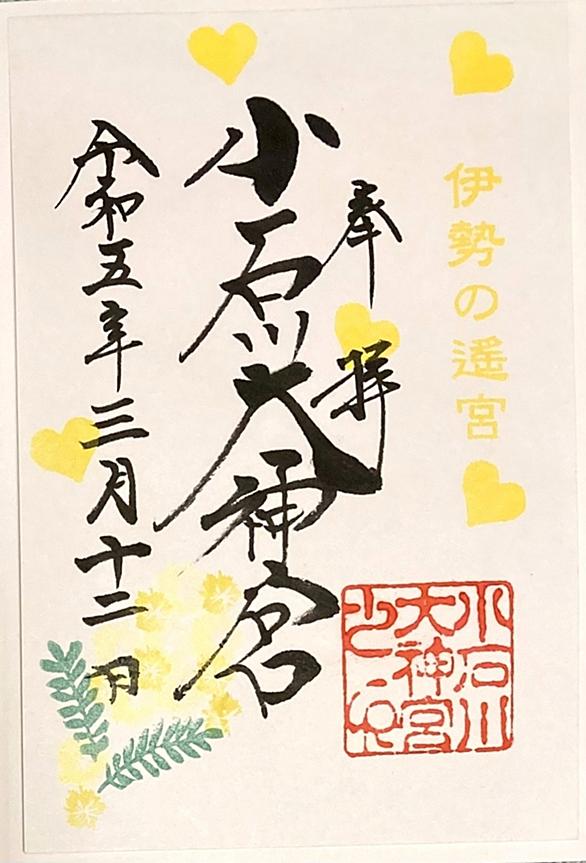 伊勢の遙宮
奉拝
小石川大神宮
令和五年三月十二日
小石川
大神宮